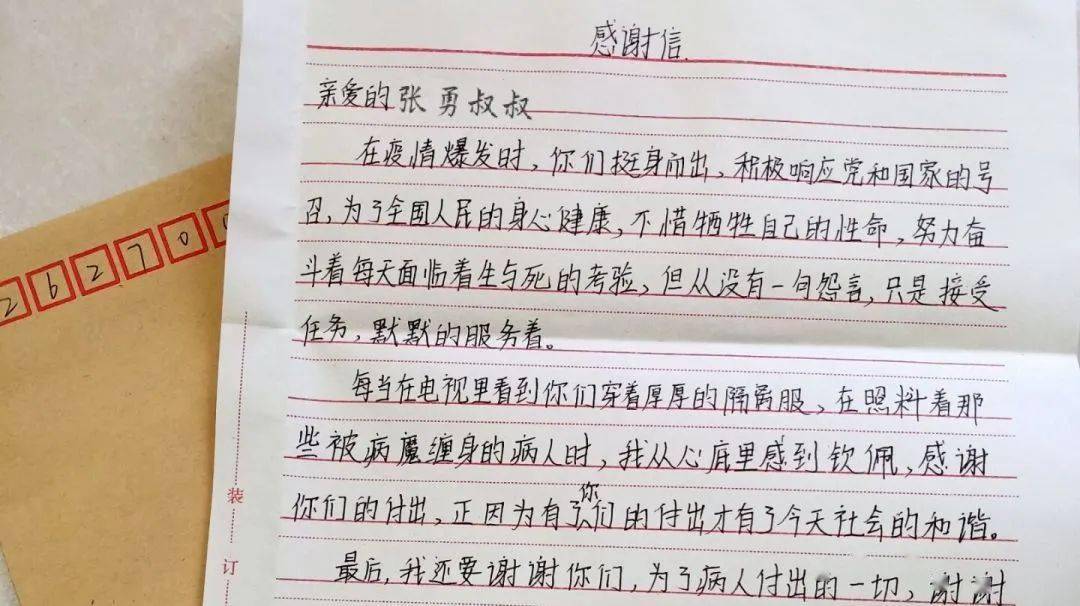 感谢信.
亲爱的张勇叔叔
在疫情爆发时，你们挺身而出，积极响应党和国家的号
召，为了全国人民的身心健康，不惜牺牲自己的性命，努力奋
斗着每天面临着生与死的考验，但从没有一句怨言，只是接受
任务，默默的服务着。
每当在电视里看到你们穿着厚厚的隔离服，在照料着那
些被病魔缠身的病人时，我从心底里感到钦佩，感谢
你们的付出，正因为有了你们的付出才有了今天社会的和谐。
最后，我还要谢谢你们，为了病人付出的一切，谢谢
装
订
26270